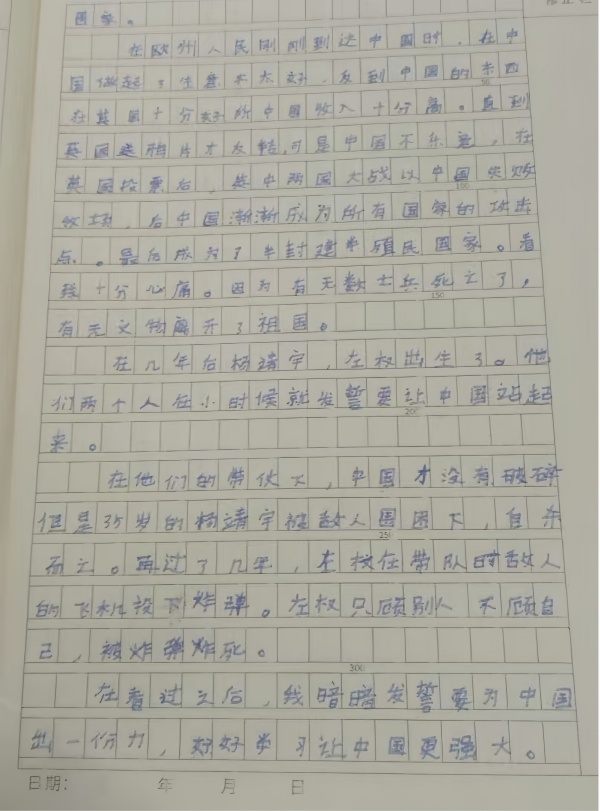 国家。
在欧州人民刚刚到达中国时,在中
国做起了生意不太好,反到中国的东西
在英国十分好所中国收入十分高。直到
英国鸦片才反转,可是中国不乐意,在
英国投票后,英中两国大战以中国失败
收场,后中国渐渐成为所有国家的攻击
点。最后成为了半封建半殖民国家。看
我十分心痛。因为有无数士兵死亡了,
有无文物离开了祖国。
在几年后杨靖宇,左权出生了。他
们两个人在小时候就发誓要让中国站起
来。
在他们的带伙下,中国才没有破碎
但是35岁的杨靖宇被敌人围困下,自杀
而亡。再过了几年,左权在带队时敌人
的飞机投下炸弹。左权只顾别人不顾自
己,被炸弹炸死。
在看过之后,我暗暗发誓要为中国
出一份力,好好学习让中国更强大。
150
200
250
300
日期: 年 月 日